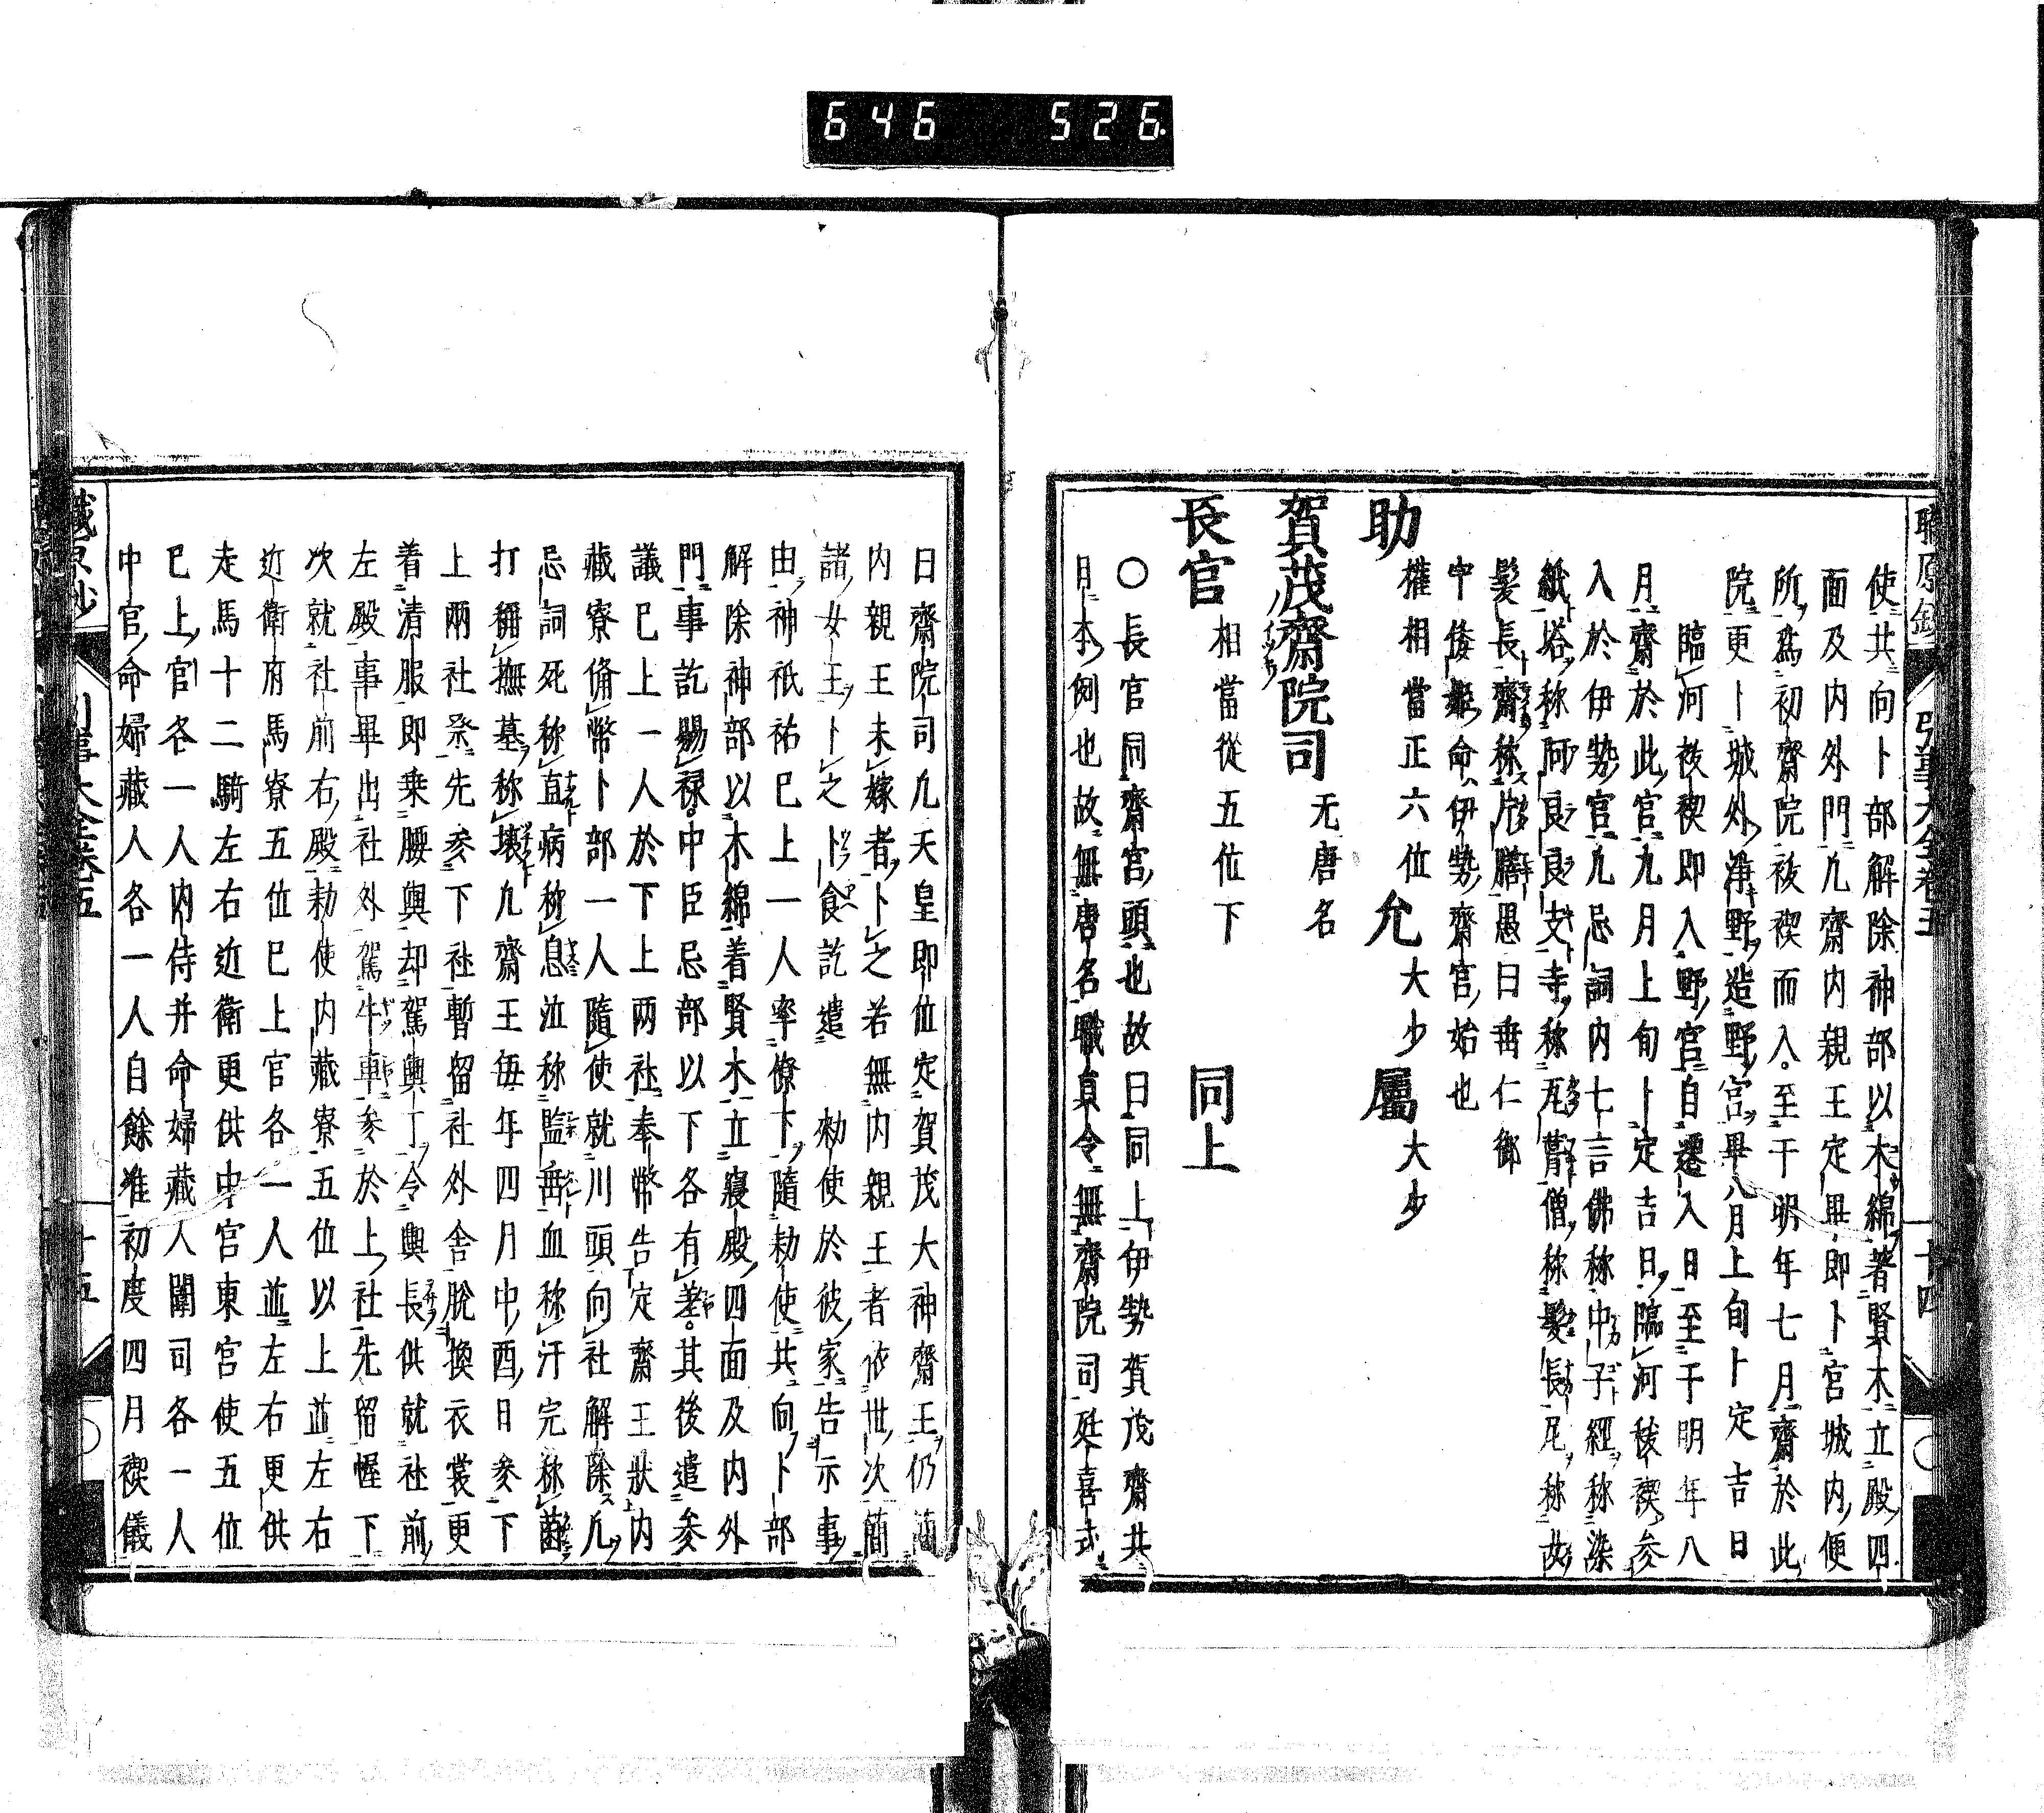 646 526
使共向卜部解除神部以木綿著賢木立殿四
面及内外門凢齋内親王定畢即卜宮城内便
所爲初齋院祓禊而入至于明年七月齋於此
院更卜城外浄野造野宮畢八月上旬卜定吉日
臨河祓禊即入野宮自遷入日至于明年八
月齋於此宮九月上旬卜定吉日臨河祓禊参
入於伊勢宮凢忌詞内七言佛称中子經称染
紙塔称阿良良支寺称瓦葺僧称髪長尼称女
髪長齋称片膳愚曰垂仁御
中倭姫命伊勢齋宮始也
助
權相當正六位
允
大少
屬
大少
賀茂齋院司
无唐名
長官
相當從五位下
同上
〇長官同齋宮頭也故曰同上伊勢賀茂齋共
日本例也故無唐名職員令無齋院司延喜式
日齋院司凢天皇即位定賀茂大神齋王仍簡
内親王未嫁者卜之若無内親王者依世次簡
諸女王卜之卜食訖遣 勅使於彼家告示事
由神祇祐巳上一人率僚下隨勅使共向卜部
解除神部以木綿着賢木立寝殿四面及内外
門事訖賜禄中臣忌部以下各有差其後遣参
議巳上一人於下上两社奉幣告定齋王狀内
藏寮俻幣卜部一人隨使就川頭向社解除凢
忌詞死称直病称息泣称塩垂血称汗宍称菌
打称撫墓称壌凢齋王毎年四月中酉日参下
上兩社祭先参下社暫留社外舎脱換衣裳更
着清服即乗腰輿却駕輿丁令輿長供就社前
左殿事畢出社外駕牛車参於上社先留幄下
次就社前右殿勅使内藏寮五位以上並左右
近衛府馬寮五位巳上官各一人並左右更供
走馬十二騎左右近衛更供中宮東宮使五位
巳上官各一人内侍并命婦藏人闈司各一人
中宮命婦藏人各一人自餘准初度四月禊儀